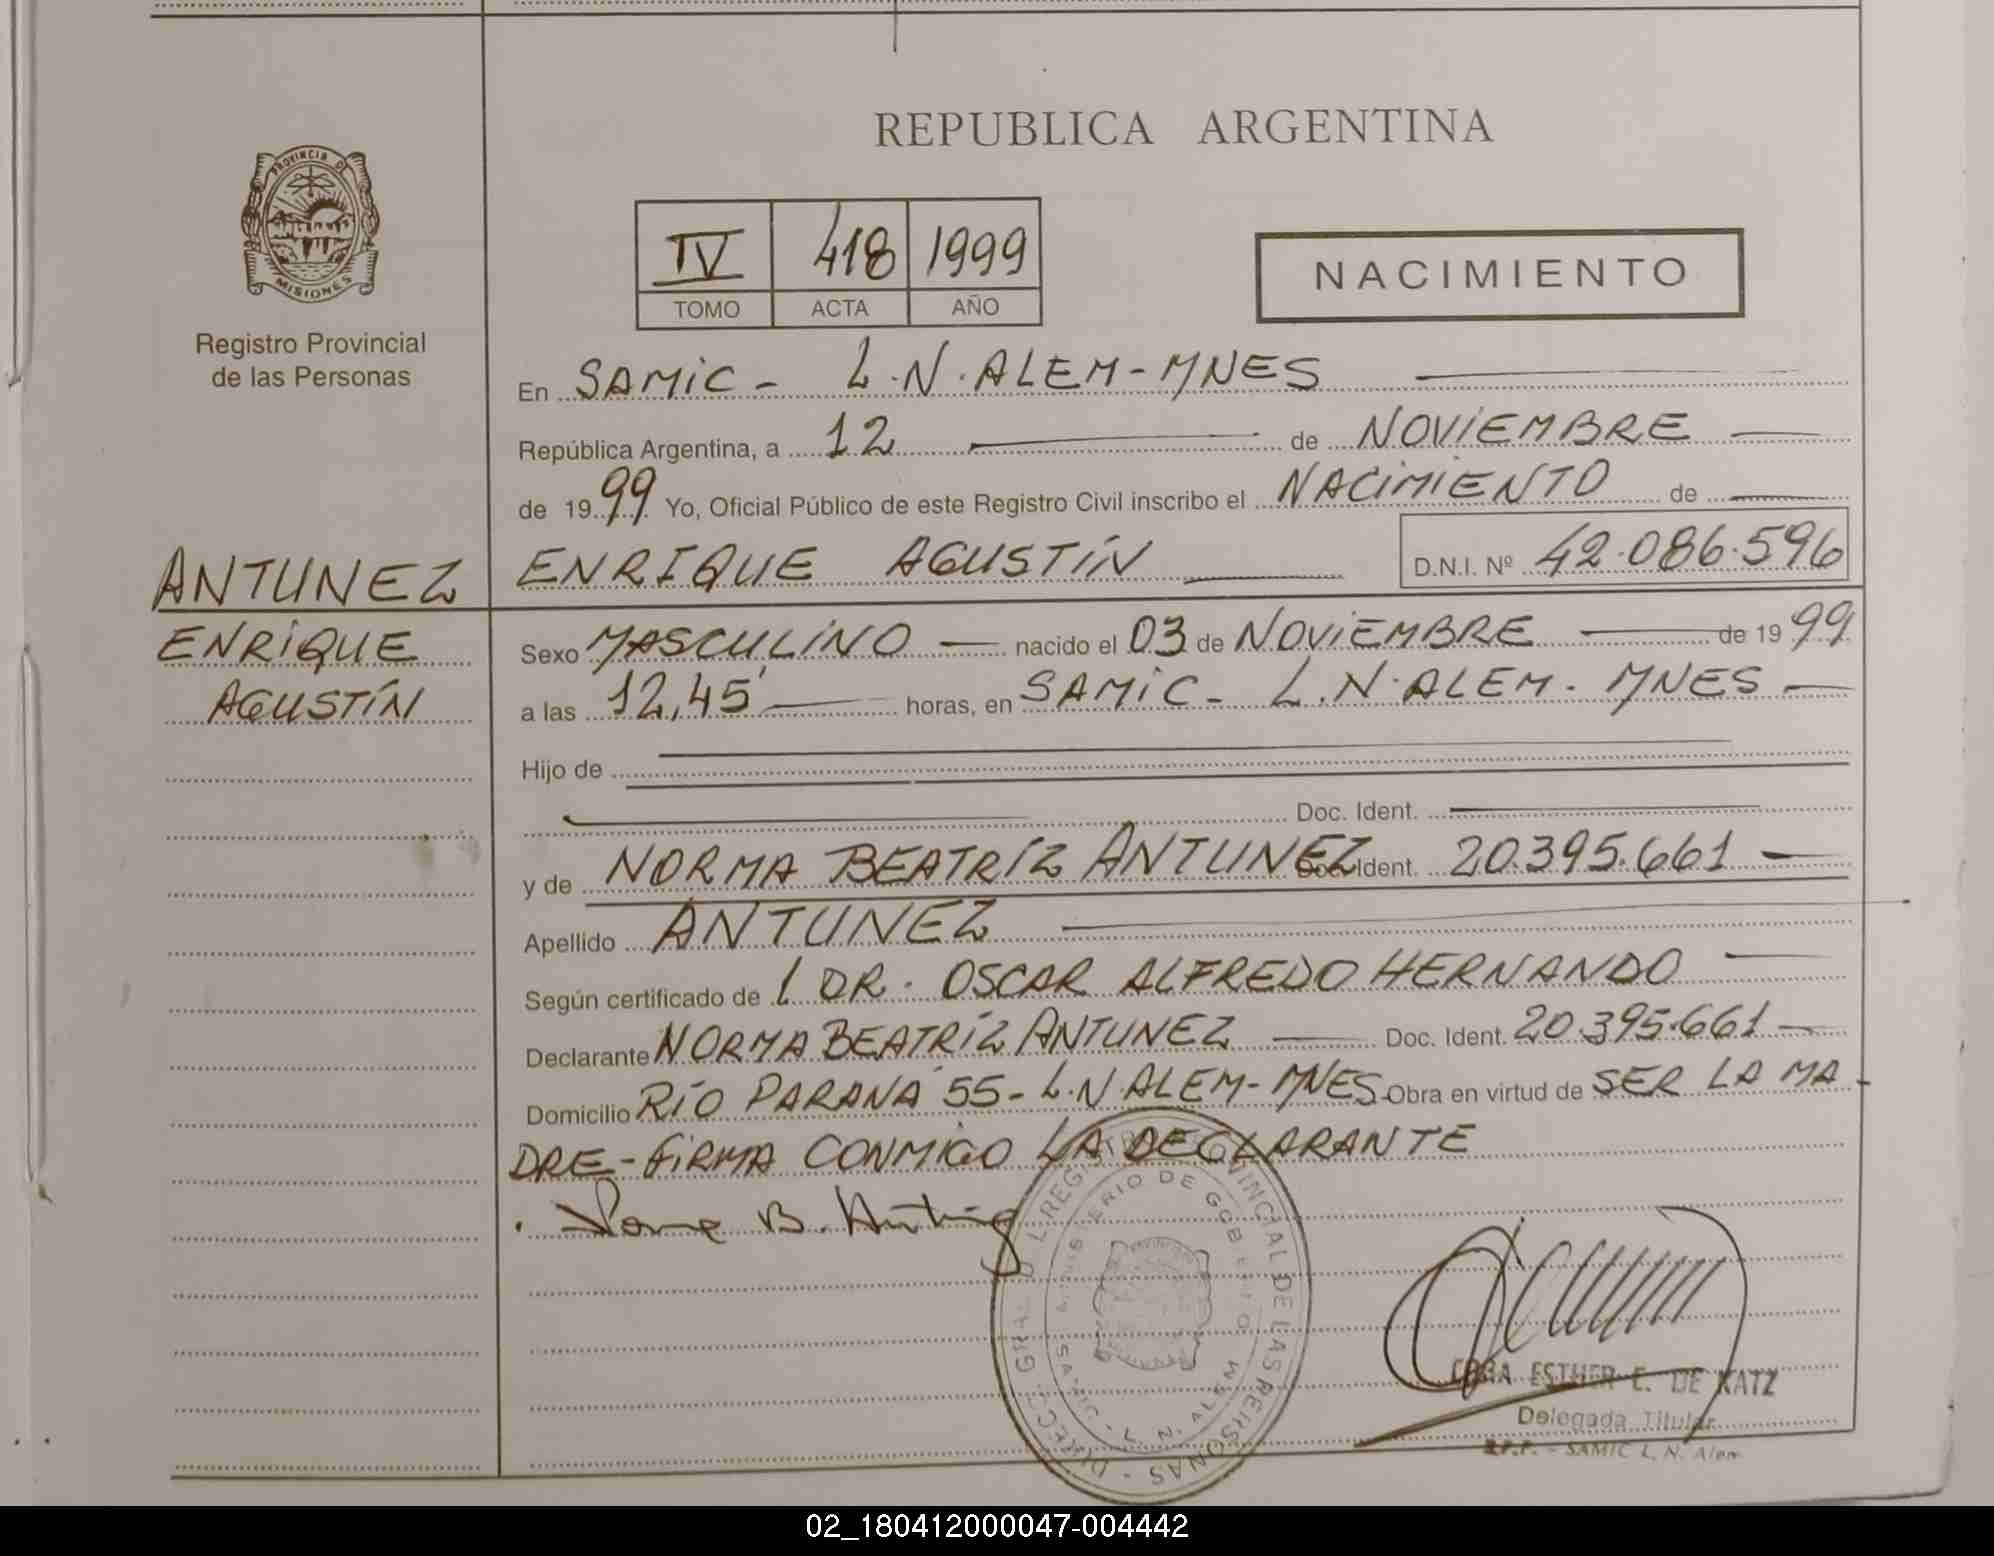 REPUBLICA ARGENTINA
PROVINCIA DE
MISIONES
Registro Provincial
de las Personas
IV 418 1999
TOMO ACTA AÑO
NACIMIENTO
En SAMIC - L.N. ALEM - MNES
República Argentina, a 12 de NOVIEMBRE
de 1999 Yo, Oficial Público de este Registro Civil inscribo el NACIMIENTO de
ENRIQUE AGUSTÍN D.N.I. Nº 42.086.596
ANTUNEZ
ENRIQUE
AGUSTÍN
Sexo MASCULINO nacido el 03 de NOVIEMBRE de 1999
a las 12,45' horas, en SAMIC - L.N. ALEM - MNES
Hijo de
Doc. Ident.
y de NORMA BEATRÍZ ANTUNEZ Doc. Ident. 20.395.661
Apellido ANTUNEZ
Según certificado de l DR. OSCAR ALFREDO HERNANDO
Declarante NORMA BEATRÍZ ANTUNEZ Doc. Ident. 20.395.661
Domicilio RÍO PARANÁ 55 - L.N. ALEM - MNES Obra en virtud de SER LA MA-
DRE - FIRMA CONMIGO LA DECLARANTE
DIRECC. GRAL. REGISTRO PROVINCIAL DE LAS PERSONAS
MINISTERIO DE GOBIERNO
SAMIC - L. N. ALEM
ESTHER E. DE KATZ
Delegada Titular
R.P.P. - SAMIC L. N. Alem
02_180412000047-004442